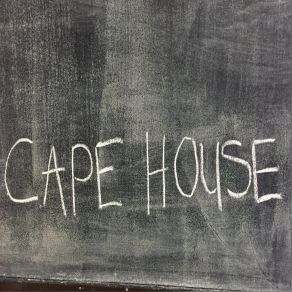 CAPE HOUSE